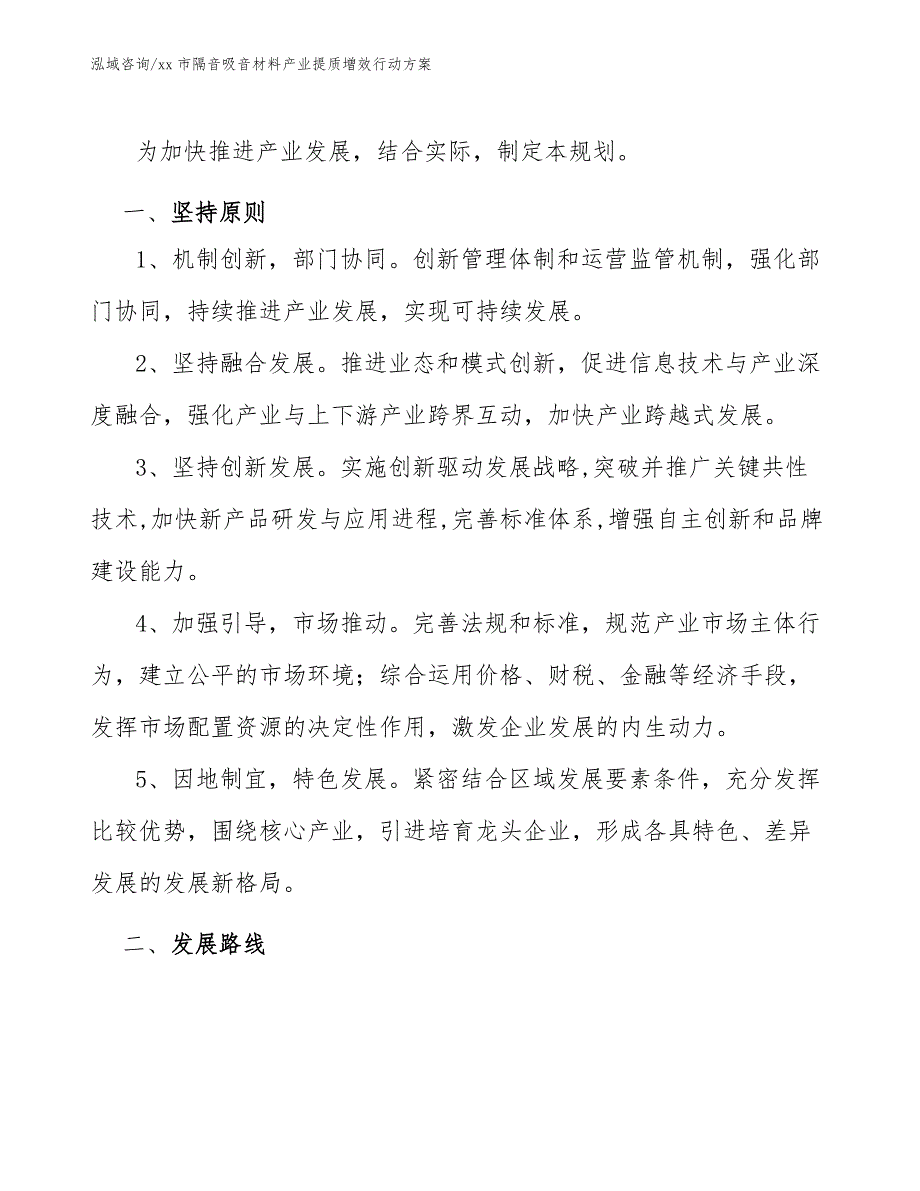 泓域咨询/xx 市隔音吸音材料产业提质增效行动方案
为加快推进产业发展，结合实际，制定本规划。
一、坚持原则
1、机制创新，部门协同。创新管理体制和运营监管机制，强化部
门协同，持续推进产业发展，实现可持续发展。
2、坚持融合发展。推进业态和模式创新，促进信息技术与产业深
度融合，强化产业与上下游产业跨界互动，加快产业跨越式发展。
3、坚持创新发展。实施创新驱动发展战略,突破并推广关键共性
技术,加快新产品研发与应用进程,完善标准体系,增强自主创新和品牌
建设能力。
4、加强引导，市场推动。完善法规和标准，规范产业市场主体行
为，建立公平的市场环境；综合运用价格、财税、金融等经济手段，
发挥市场配置资源的决定性作用，激发企业发展的内生动力。
5、因地制宜，特色发展。紧密结合区域发展要素条件，充分发挥
比较优势，围绕核心产业，引进培育龙头企业，形成各具特色、差异
发展的发展新格局。
二、发展路线